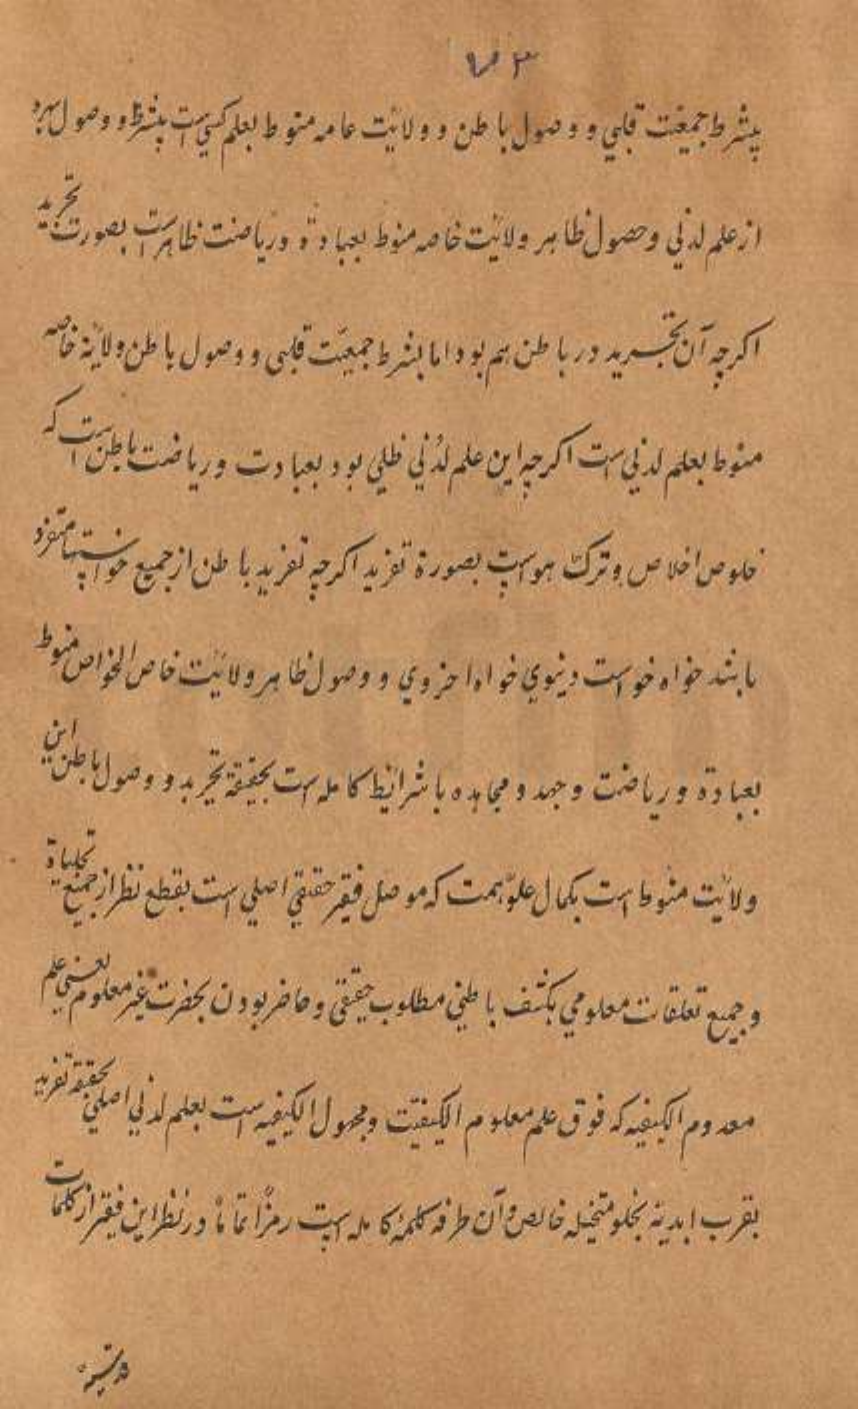 بشرط جمعیت قلبی و وصول باطن و ولائیت عامه منوط بعلم کسبی است بشرط و وصول بهره
از علم لدنی وحصول ظاهر ولائیت خاصه منوط بعبادة و وریاضت ظاهرست بصورت تجرید
اکرچه آن تجرید در باطن هم بود اما بشرط جمعیّت قلبی و وصول باطن ولایة خاصه
منوط بعلم لدنی است اکرچه این علم لدُنی ظلی بود بعبادت وریاضت باطن است که
خلوص اخلاص وترک هواست بصورة تفرید اکرچه تفرید باطن از جمیع خواستها متفرد
باشد خواه خواست دنیوی خواه اخروی و وصول ظاهر ولائیت خاص الخواص منوط
بعبادة وریاضت وجهد ومجاهده با شرائط کامله است بحقیقة تجرید و وصول باطن این
ولائیت منوط است بکمال علوّ همت که موصل فقر حقیقی اصلی است بقطع نظر از جمیع تجلیاة
وجمیع تعلقات معلومی بکشف باطنی مطلوب حقیقی وحاضر بودن بحضرت غیر معلوم یعنی علم
معدوم الکیفیه که فوق علم معلوم الکیفیّت ومجهول الکیفیه است بعلم لدنی اصلی بحقیقة تفرید
بقرب ابدیة بخلو متخیله خالص وآن طرفه کلمهٔ کامله است رمزاً تماماً در نظر این فقیر از کلمات